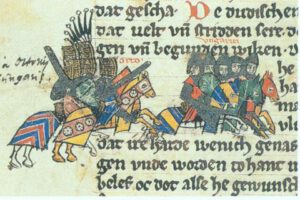 dat gescha De dudischen
ungarius
dat uelt vñ striden sere. d
gen vñ begunden wiken. v
otto
he
ha
dat ire harde wenich genas
gen vnde worden to hant v
belef oc dot alse he gewunsch